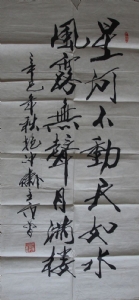 星河不動天如水
風露無聲月滿樓
辛巳年秋